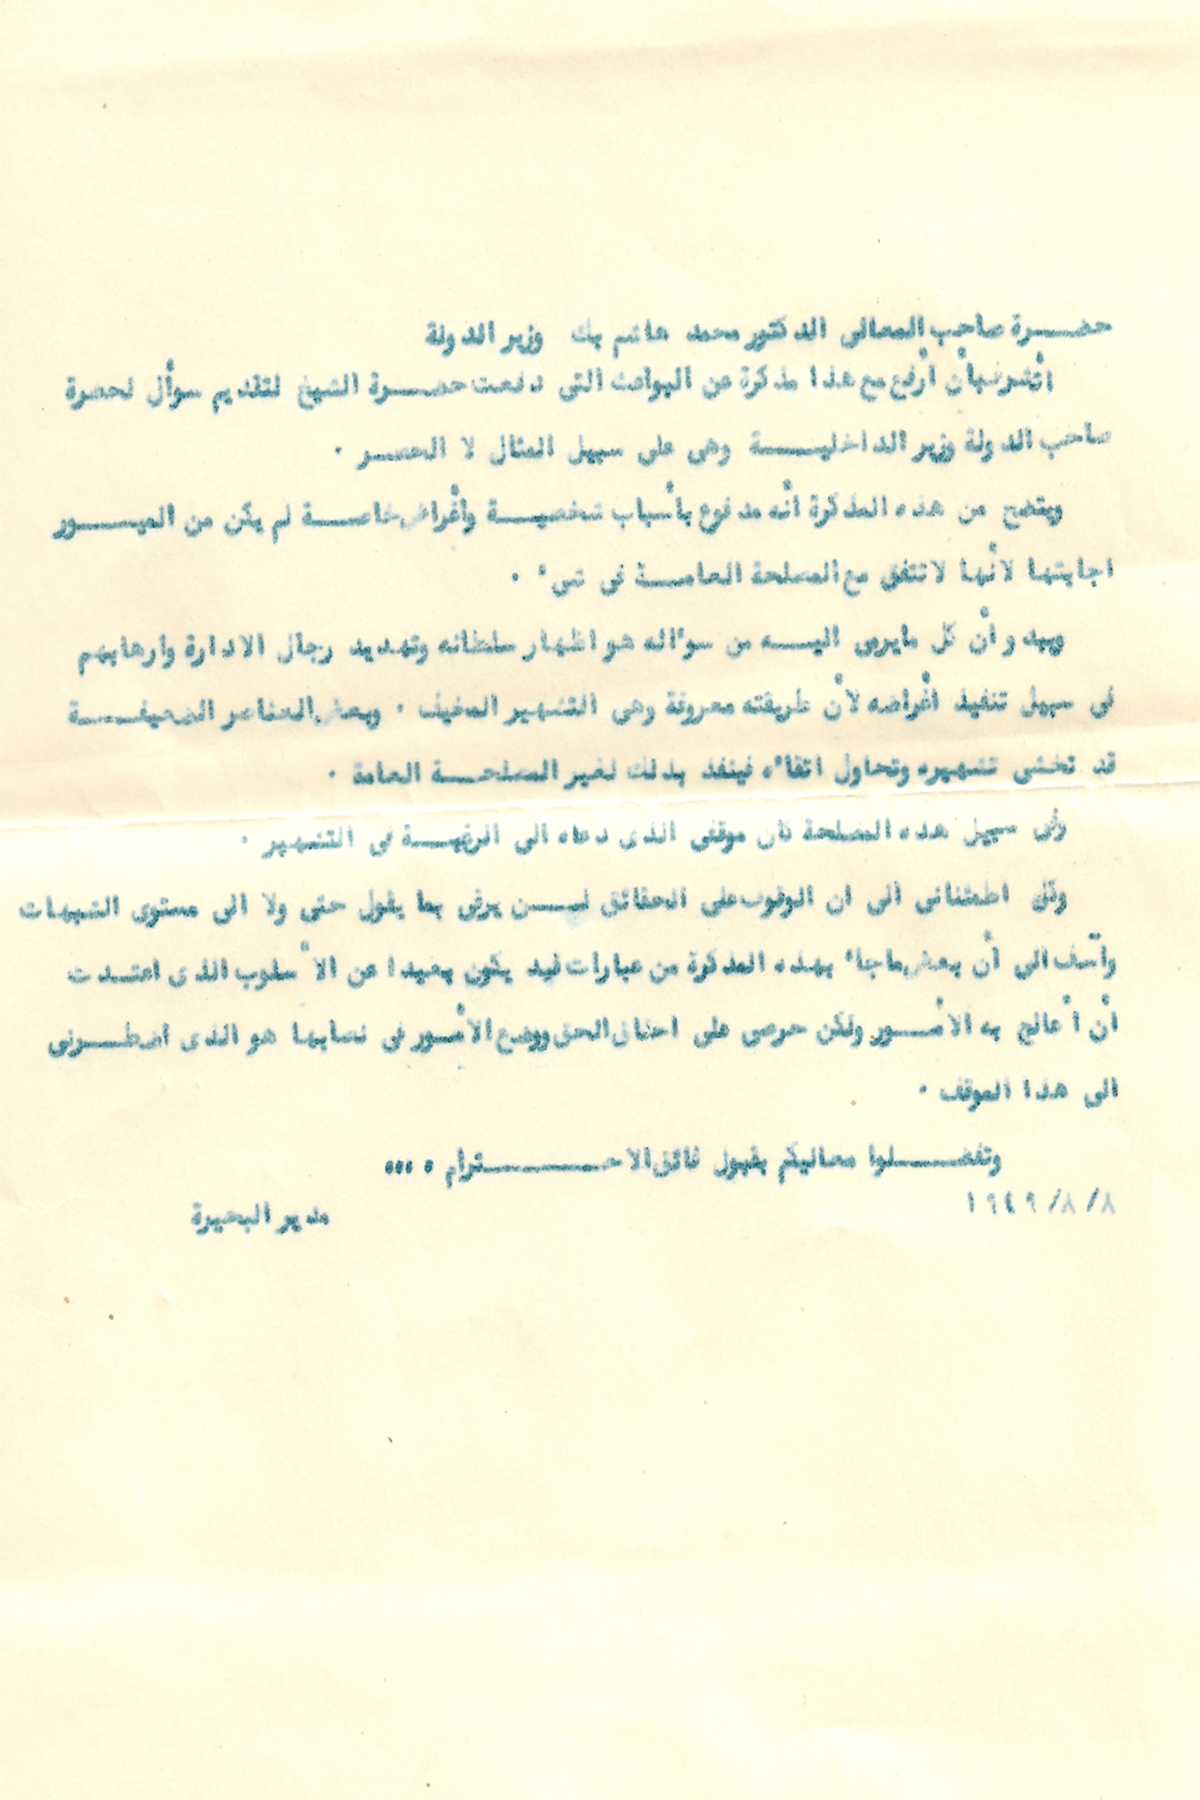 حضرة صاحب المعالى الدكتور محمد هاشم بك وزير الدولة
أتشرف بأن أرفع مع هذا مذكرة عن البواعث التى دفعت حضرة الشيخ لتقديم سوأل لحضرة
صاحب الدولة وزير الداخلية وهى على سبيل المثال لا الحصر ٠
ويتضح من هذه المذكرة أنه مدفوع بأسباب شخصية وأغراض خاصة لم يكن من الميسور
اجابتها لأنها لاتتفق مع المصلحة العامة فى شىء ٠
ويبدو أن كل مايرمى اليه من سوءاله هو اظهار سلطانه وتهديد رجال الادارة وارهابهم
فى سبيل تنفيذ أغراضه لأن طريقته معروفة وهى التشهير المخيف ٠ وبعض العناصر الضعيفة
قد تخشى تشهيره وتحاول اتقاءه فينفذ بذلك لغير المصلحة العامة ٠
وفى سبيل هذه المصلحة كان موقفى الذى دعاه الى الرغبة فى التشهير ٠
وكل اطمئنانى الى ان الوقوف على الحقائق ليس يرقى بما يقول حتى ولا الى مستوى الشبهات
وآسف الى أن بعض ماجاء بهذه المذكرة من عبارات قد يكون بعيدا عن الأسلوب الذى اعتدت
أن أعالج به الأمور ولكن حرصى على احقاق الحق ووضع الأمور فى نصابها هو الذى اضطرنى
الى هذا الموقف ٠
وتفضلوا معاليكم بقبول فائق الاحترام ٠ ٠٠٠
٨/ ٨/ ١٩٤٩
مدير البحيرة